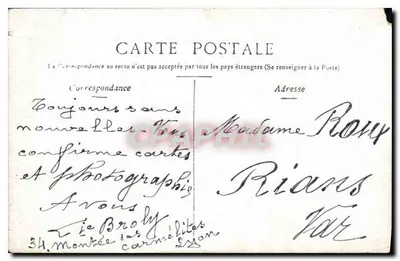 CARTE POSTALE
La Correspondance au recto n'est pas acceptée par tous les pays étrangers (Se renseigner à la Poste)
Correspondance
Toujours sans
nouvelles - Vous
confirme cartes
et photographie
A vous
Broly
34, Montée des carmélites
Lyon
Adresse
Madame Roux
Rians
Var